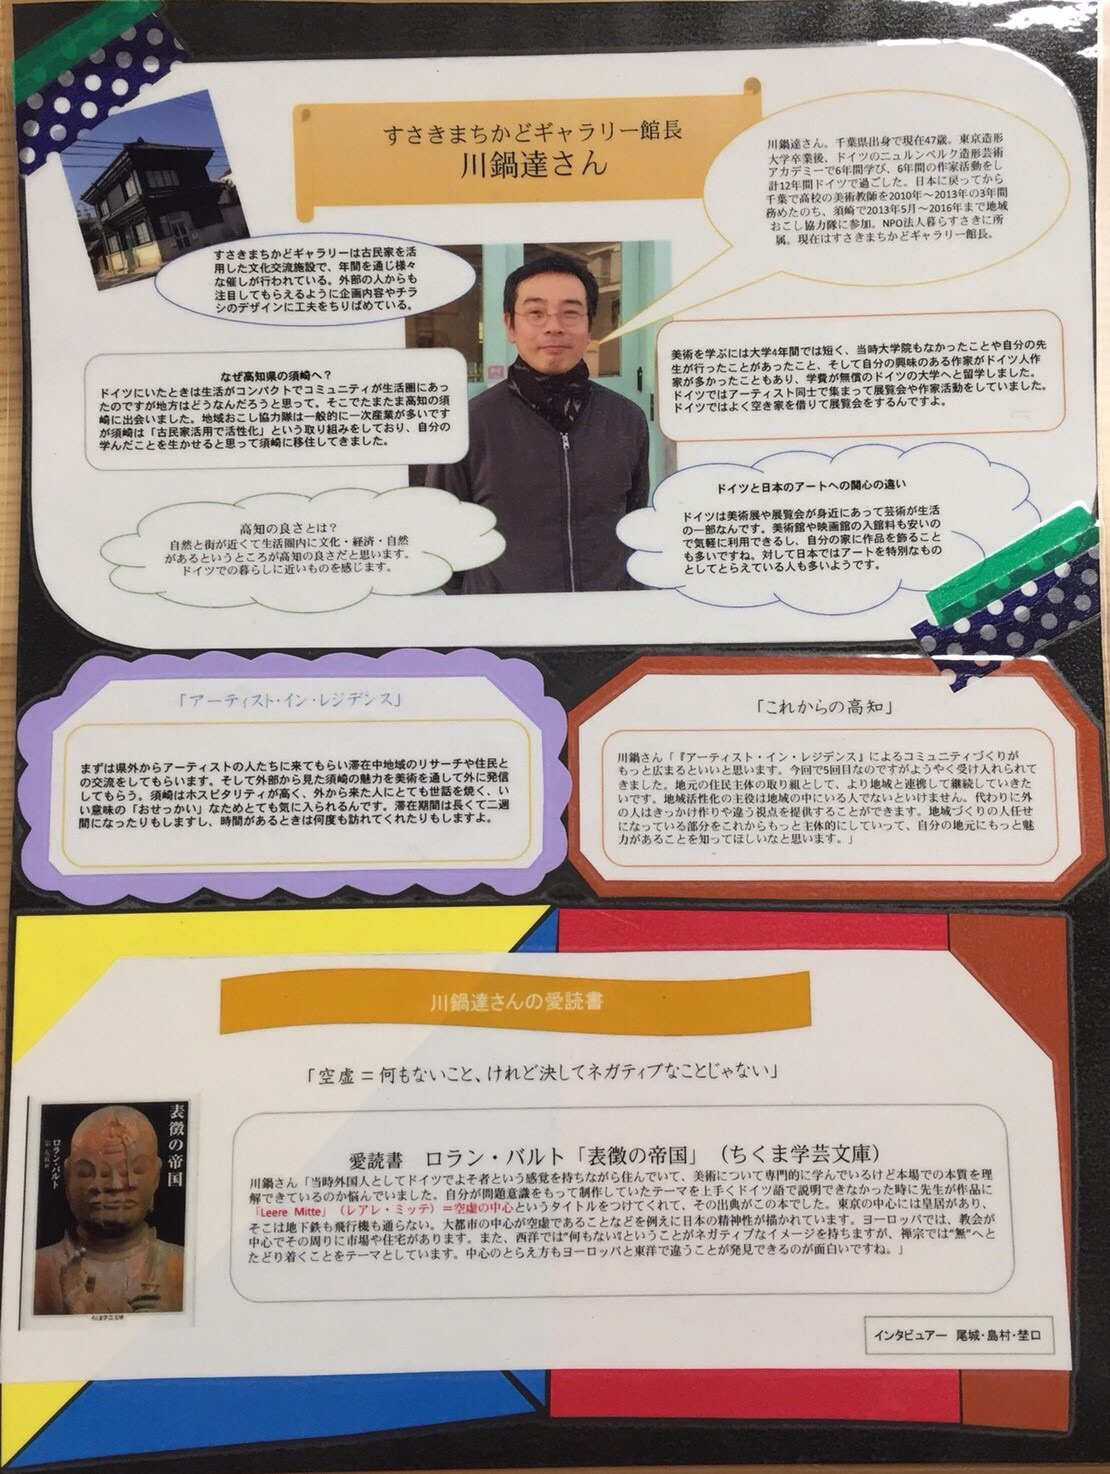 すさきまちかどギャラリー館長
川鍋達さん
川鍋達さん。千葉県出身で現在47歳。東京造形
大学卒業後、ドイツのニュルンベルク造形芸術
アカデミーで6年間学び、6年間の作家活動をし
計12年間ドイツで過ごした。日本に戻ってから
千葉で高校の美術教師を2010年～2013年の3年間
務めたのち、須崎で2013年5月～2016年まで地域
おこし協力隊に参加。NPO法人暮らすさきに所
属。現在はすさきまちかどギャラリー館長。
すさきまちかどギャラリーは古民家を活
用した文化交流施設で、年間を通じ様々
な催しが行われている。外部の人からも
注目してもらえるように企画内容やチラ
シのデザインに工夫をちりばめている。
美術を学ぶには大学4年間では短く、当時大学院もなかったことや自分の先
生が行ったことがあったこと、そして自分の興味のある作家がドイツ人作
家が多かったこともあり、学費が無償のドイツの大学へと留学しました。
ドイツではアーティスト同士で集まって展覧会や作家活動をしていました。
ドイツではよく空き家を借りて展覧会をするんですよ。
なぜ高知県の須崎へ？
ドイツにいたときは生活がコンパクトでコミュニティが生活圏にあっ
たのですが地方はどうなんだろうと思って。そこでたまたま高知の須
崎に出会いました。地域おこし協力隊は一般的に一次産業が多いです
が須崎は「古民家活用で活性化」という取り組みをしており、自分の
学んだことを生かせると思って須崎に移住してきました。
高知の良さとは？
自然と街が近くて生活圏内に文化・経済・自然
があるというところが高知の良さだと思います。
ドイツでの暮らしに近いものを感じます。
ドイツと日本のアートへの関心の違い
ドイツは美術展や展覧会が身近にあって芸術が生活
の一部なんです。美術館や映画館の入館料も安いの
で気軽に利用できるし、自分の家に作品を飾ること
も多いですね。対して日本ではアートを特別なもの
としてとらえている人も多いようです。
「アーティスト・イン・レジデンス」
まずは県外からアーティストの人たちに来てもらい滞在中地域のリサーチや住民と
の交流をしてもらいます。そして外部から見た須崎の魅力を美術を通して外に発信
してもらう。須崎はホスピタリティが高く、外から来た人にとても世話を焼く、い
い意味の「おせっかい」なためとても気に入られるんです。滞在期間は長くて二週
間になったりもしますし、時間があるときは何度も訪れてくれたりもしますよ。
「これからの高知」
川鍋さん「『アーティスト・イン・レジデンス』によるコミュニティづくりが
もっと広まるといいと思います。今回で5回目なのですがようやく受け入れられて
きました。地元の住民主体の取り組として、より地域と連携して継続していきた
いです。地域活性化の主役は地域の中にいる人でないといけません。代わりに外
の人はきっかけ作りや違う視点を提供することができます。地域づくりの人任せ
になっている部分をこれからもっと主体的にしていって、自分の地元にもっと魅
力があることを知ってほしいなと思います。」
川鍋達さんの愛読書
「空虚＝何もないこと、けれど決してネガティブなことじゃない」
表徴の帝国
ロラン・バルト
ちくま学芸文庫
愛読書　ロラン・バルト「表徴の帝国」（ちくま学芸文庫）
川鍋さん「当時外国人としてドイツでよそ者という感覚を持ちながら住んでいて、美術について専門的に学んでいるけど本場での本質を理
解できているのか悩んでいました。自分が問題意識をもって制作していたテーマを上手くドイツ語で説明できなかった時に先生が作品に
「Leere Mitte」（レアレ・ミッテ）＝空虚の中心というタイトルをつけてくれて、その出典がこの本でした。東京の中心には皇居があり、
そこは地下鉄も飛行機も通らない。大都市の中心が空虚であることなどを例えに日本の精神性が描かれています。ヨーロッパでは、教会が
中心でその周りに市場や住宅があります。また、西洋では"何もない"ということがネガティブなイメージを持ちますが、禅宗では"無"へと
たどり着くことをテーマとしています。中心のとらえ方もヨーロッパと東洋で違うことが発見できるのが面白いですね。」
インタビュアー　尾城・島村・埜口